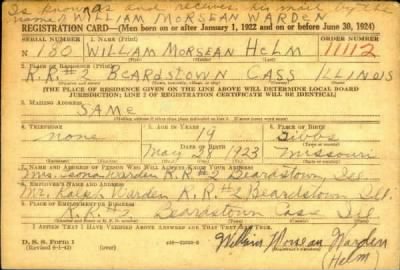 Is known as and receives his mail by the
name WILLIAM MORSEAN WARDEN
REGISTRATION CARD—(Men born on or after January 1, 1922 and on or before June 30, 1924)
SERIAL NUMBER 1. NAME ORDER NUMBER
N 180 WILLIAM MORSEAN HELM 11112
2. PLACE OF RESIDENCE (Print)
R.R.#2 BEARDSTOWN CASS ILLINOIS
(THE PLACE OF RESIDENCE GIVEN ON THE LINE ABOVE WILL DETERMINE LOCAL BOARD
JURISDICTION; LINE 2 OF REGISTRATION CERTIFICATE WILL BE IDENTICAL)
3. MAILING ADDRESS
SAME
4. TELEPHONE 5. AGE IN YEARS 6. PLACE OF BIRTH
none 19 Gibbs
DATE OF BIRTH
May 1923 Missouri
7. NAME AND ADDRESS OF PERSON WHO WILL ALWAYS KNOW YOUR ADDRESS
Mrs. Leona Warden R.R.#2 Beardstown, Ill.
8. EMPLOYER'S NAME AND ADDRESS
Mr. Ralph Warden R.R.#2 Beardstown Ill.
9. PLACE OF EMPLOYMENT OR BUSINESS
R.R.#2 Beardstown Cass Ill
I AFFIRM THAT I HAVE VERIFIED ABOVE ANSWERS AND THAT THEY ARE TRUE.
D. S. S. Form 1
(Revised 6-1-42) (over) William Morsean Warden
(Helm)